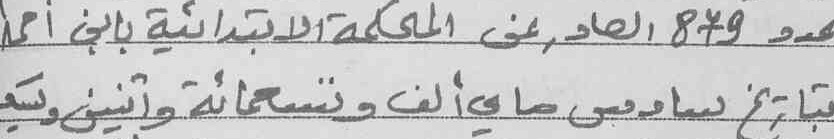 عدد 879 الصادر عن المحكمة الابتدائية بابن أحمد
بتاريخ سادس ماي ألف وتسعمائة واثنين